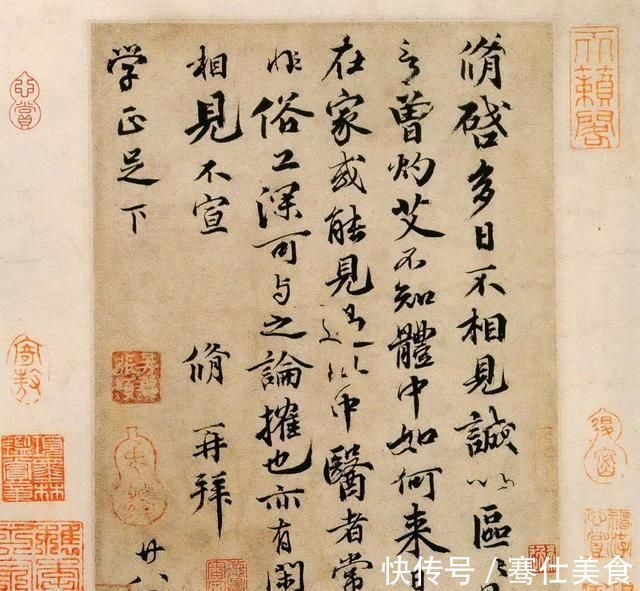 脩啓多日不相見誠以區〻
言曾灼艾不知體中如何来日
在家或能見過此中醫者常
非俗工深可与之論搉也亦有閑
相見不宣
脩再拜
廿八
学正足下
天籟閣
快传号／骞仕美食